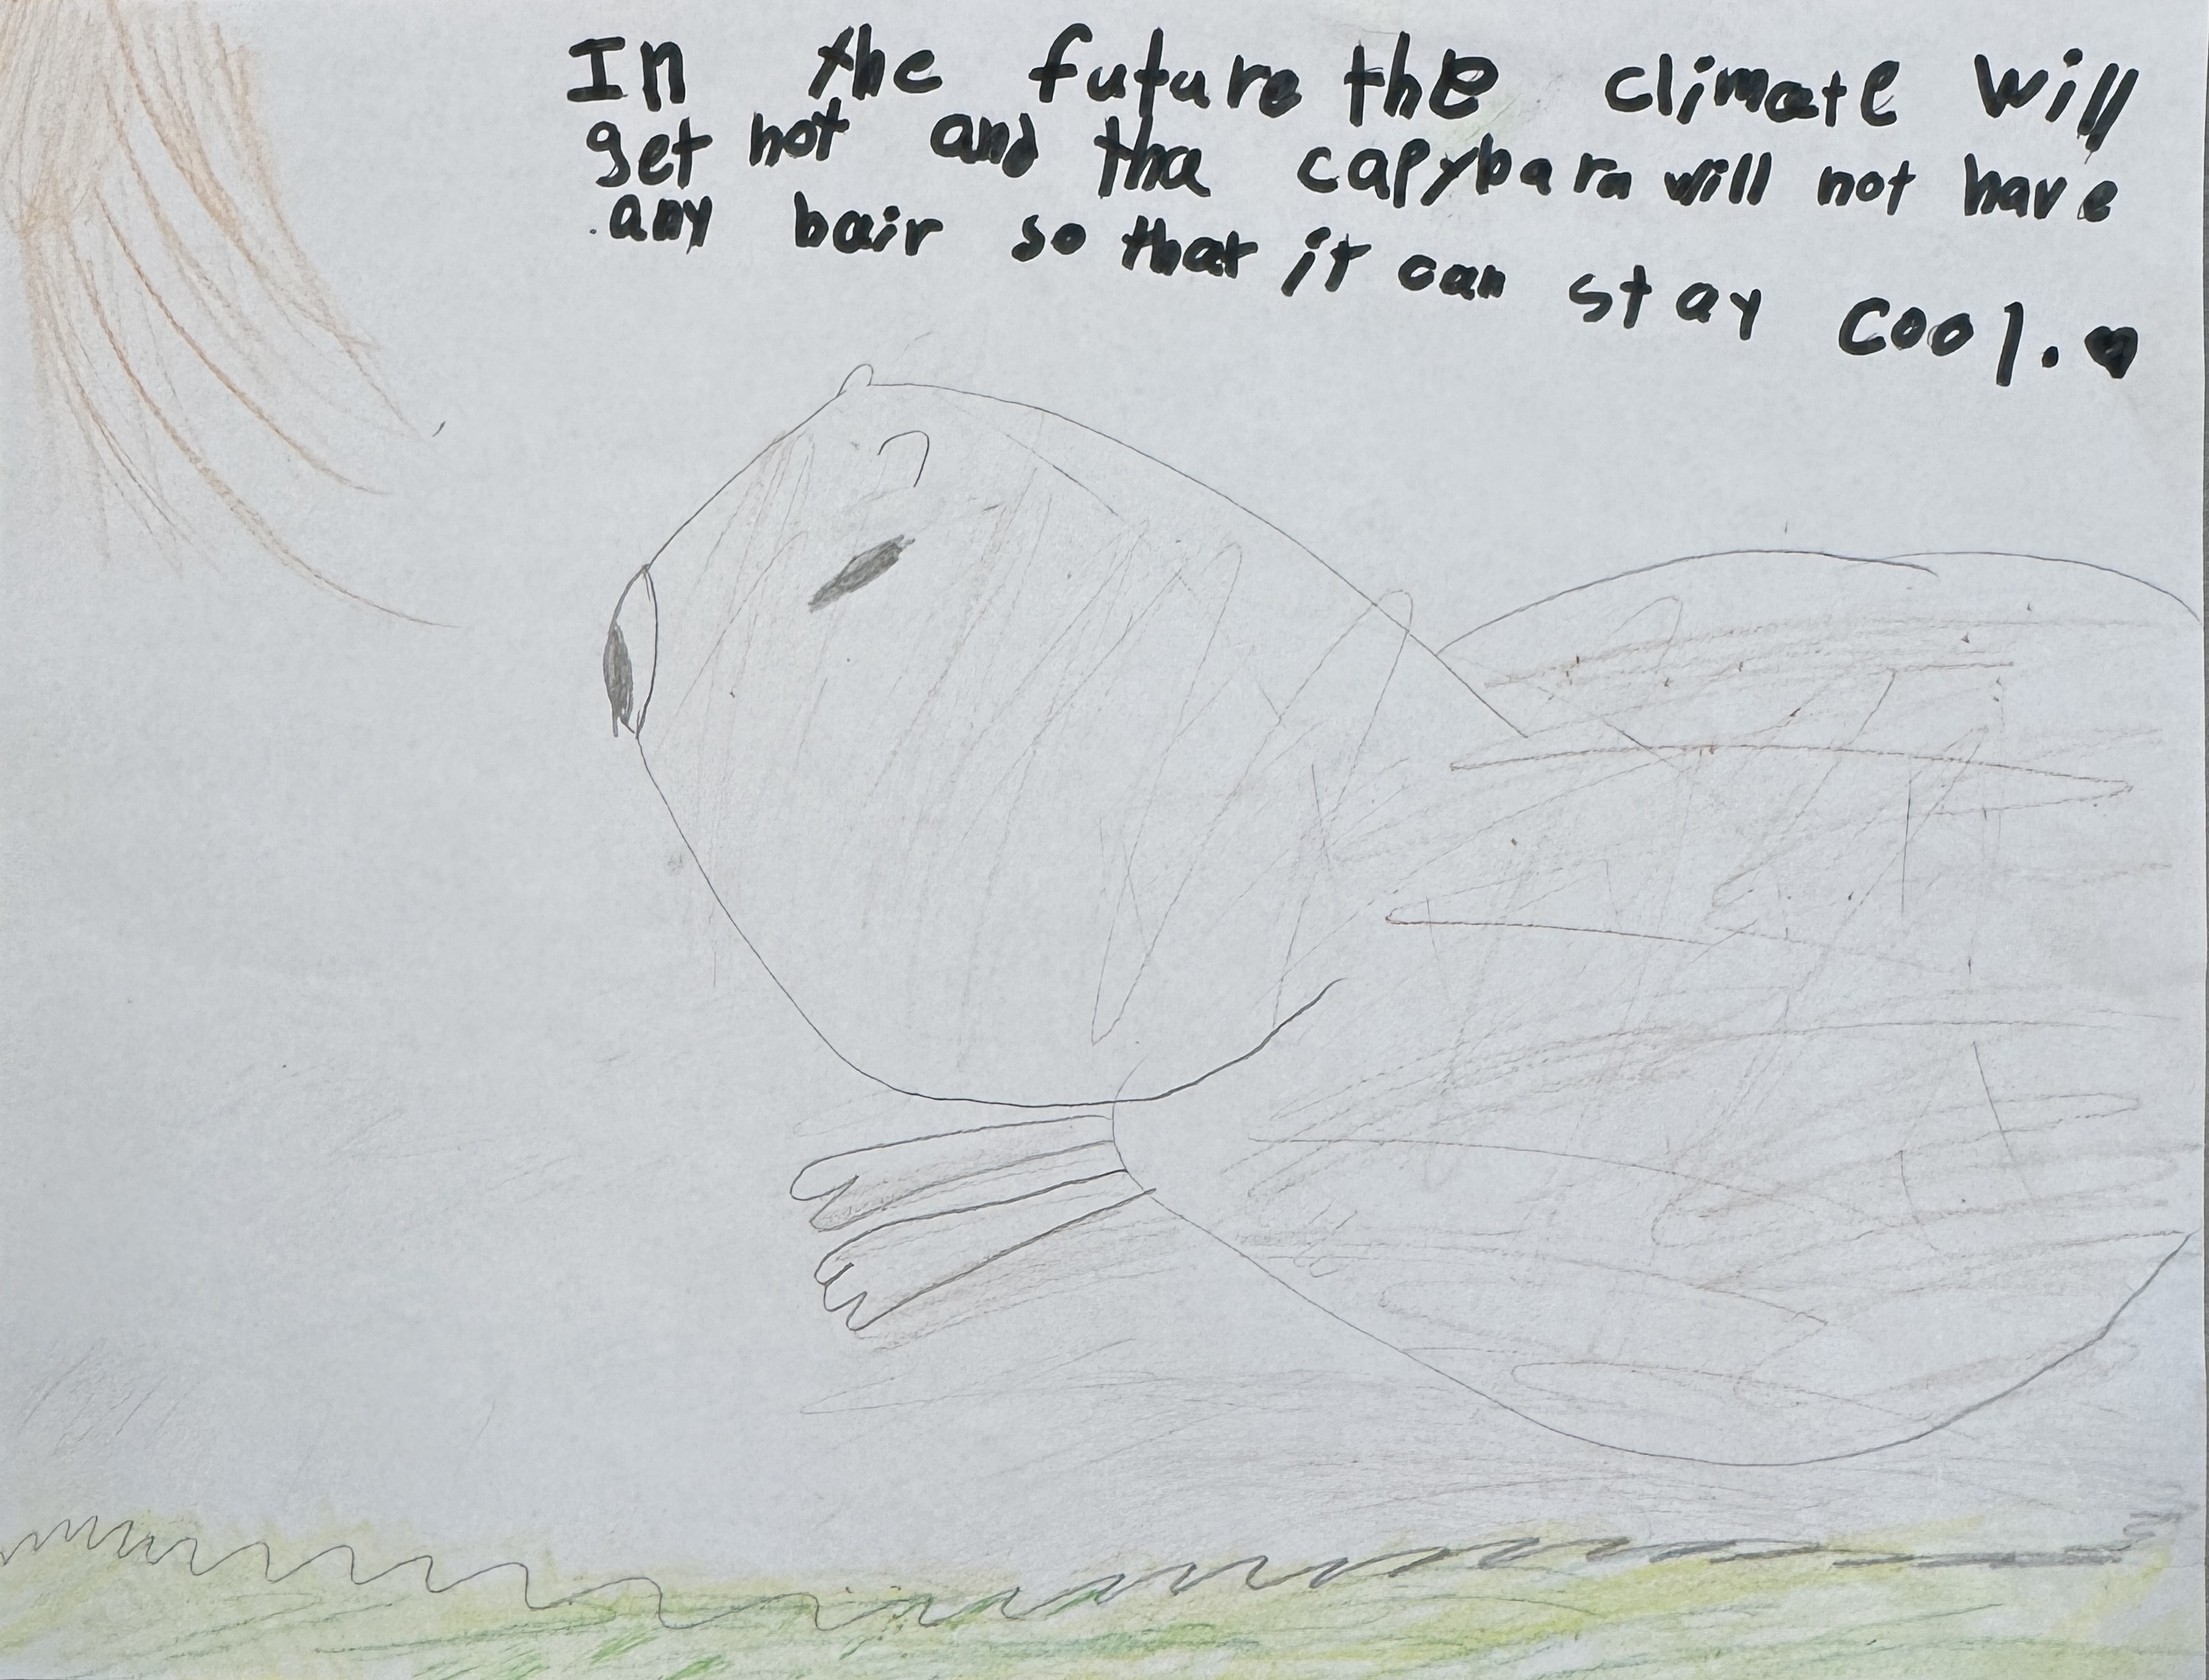 In the future the climate will
get hot and tha capybara will not have
any hair so that it can stay cool. ♥